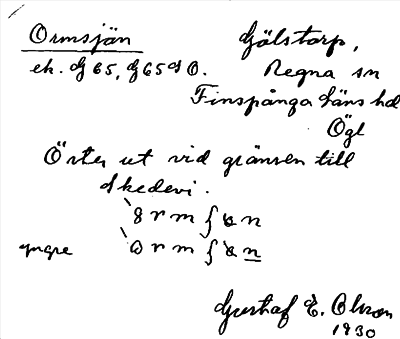 Ormsjön
Gjälstorp,
ek. G 65, G 65 d O.
Regna sn
Finspånga läns hd
Ögl
Öster ut vid gränsen till
Skedevi.
yngre
Gustaf E. Olsson
1930